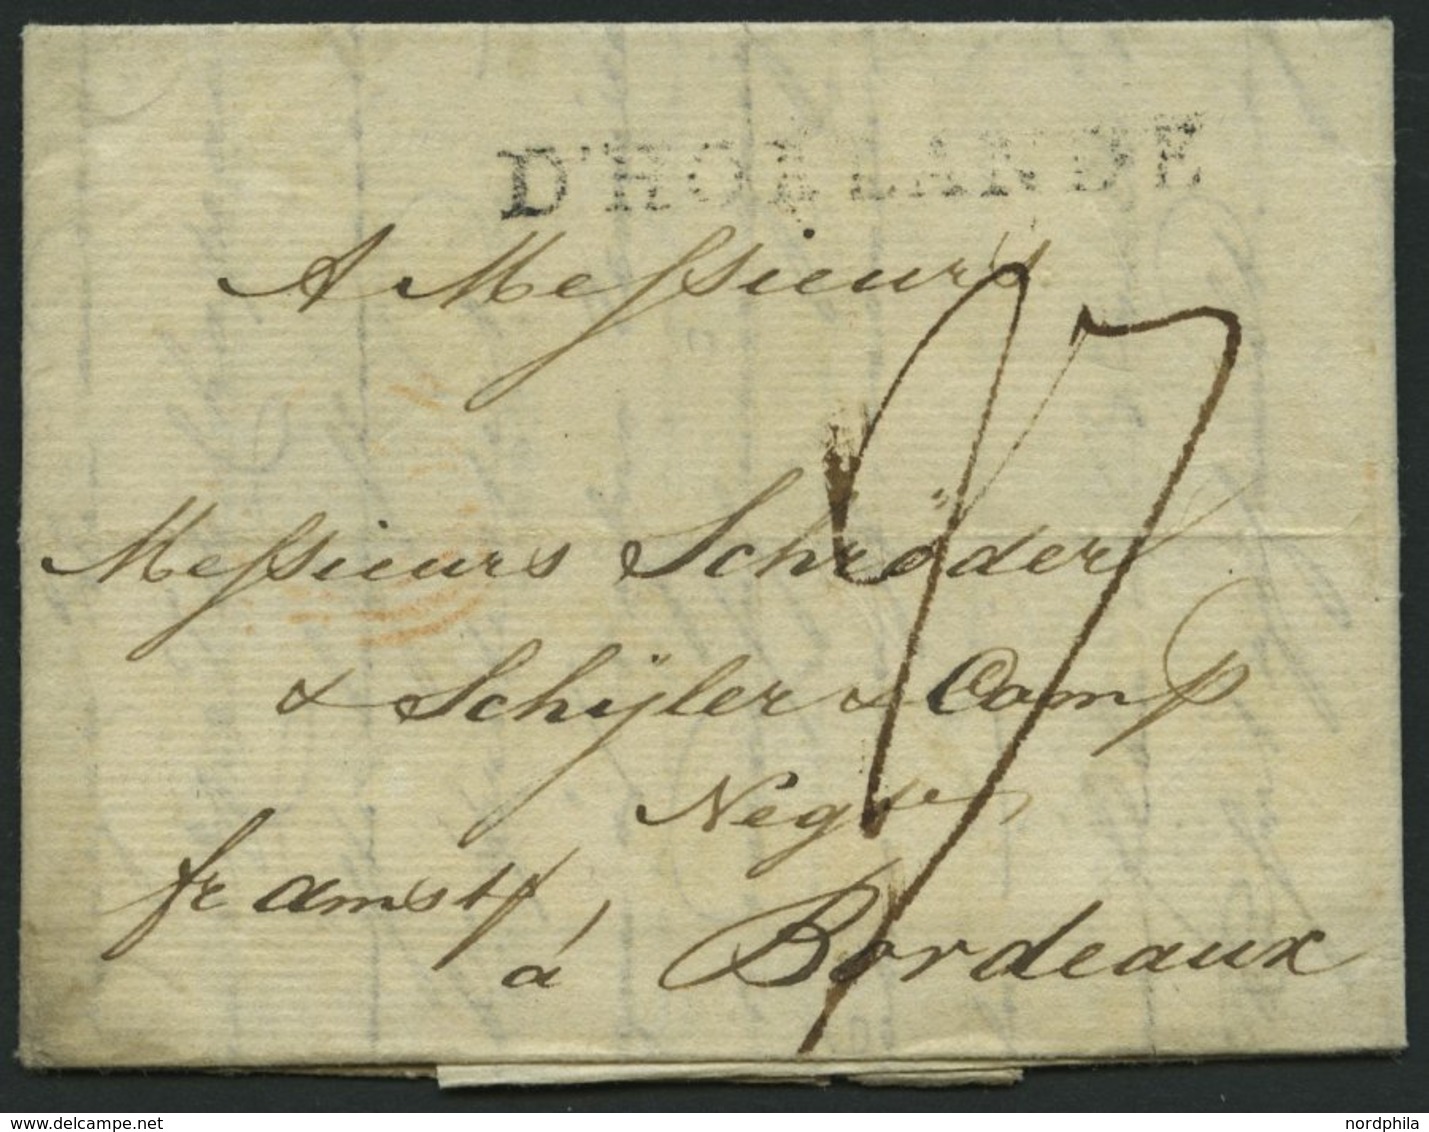 D'HOLLANDE
A Messieurs
97
Messieurs Schröder
& Schÿler & Comp
Negts
fr amst
à Bordeaux
www.delcampe.net
nordphila